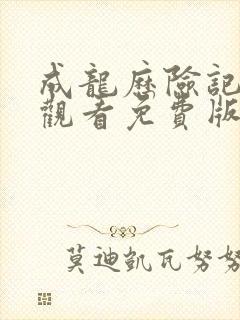 成龍歷險記
觀看免費版
莫迪凱瓦努努